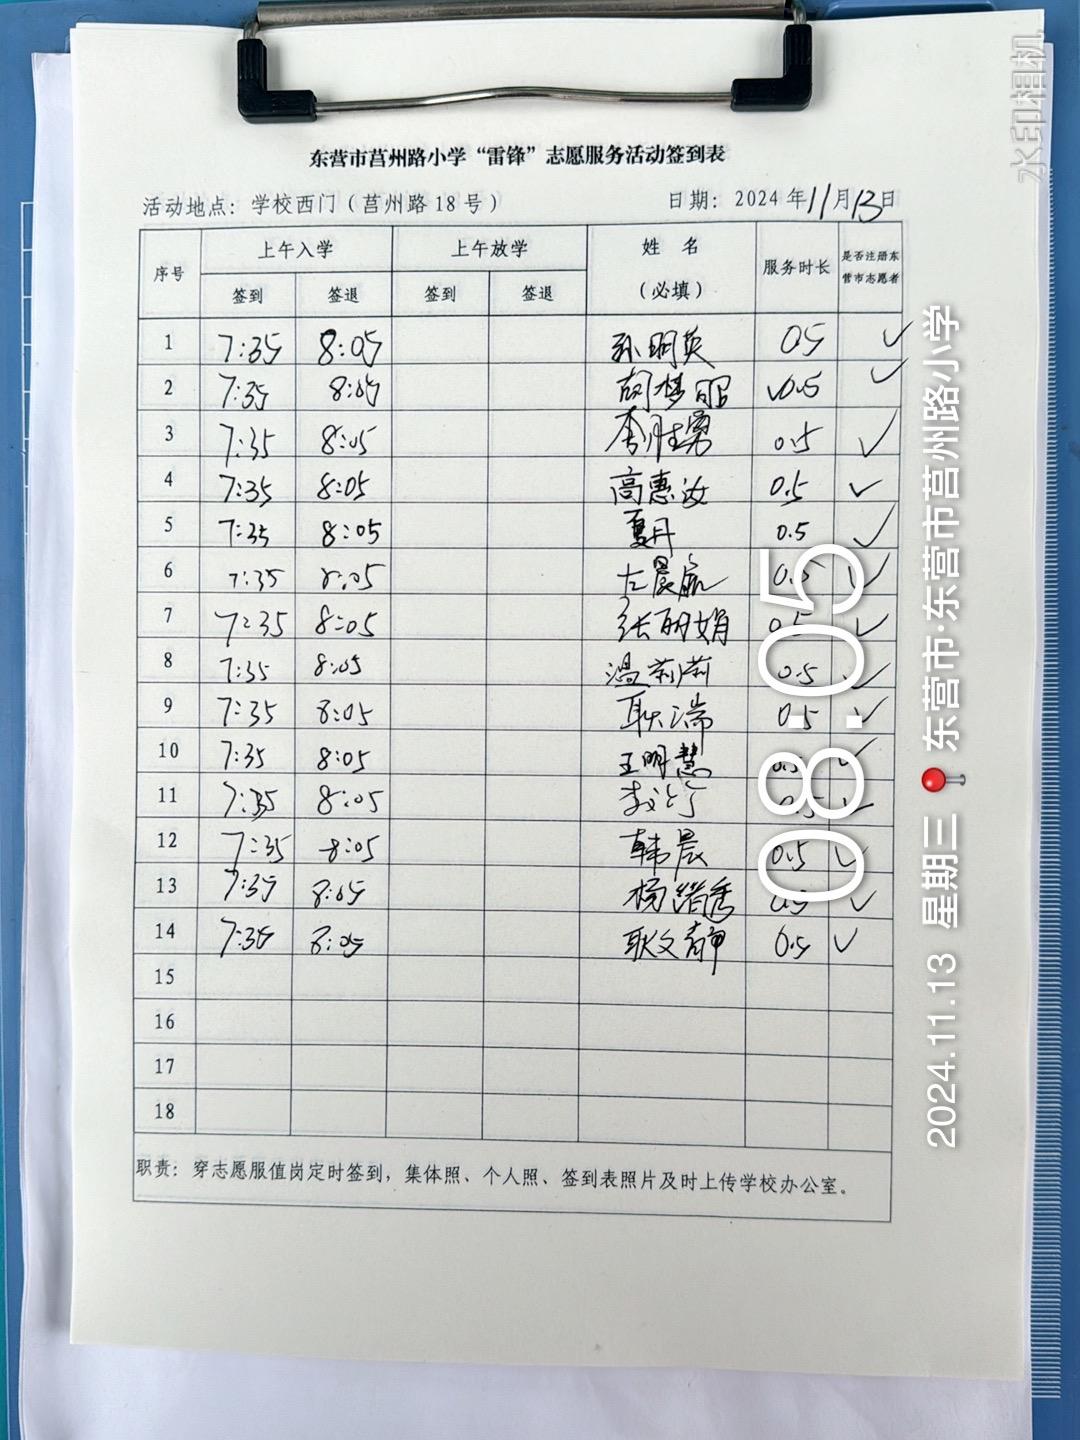 东营市莒州路小学“雷锋”志愿服务活动签到表
活动地点：学校西门（莒州路18号） 日期：2024年11月13日
序号 上午入学 上午放学 姓名（必填） 服务时长 是否注册东营市志愿者
签到 签退 签到 签退
1 7:35 8:05 孙明英 0.5 ✓
2 7:35 8:05 胡梦昭 0.5 ✓
3 7:35 8:05 李胜勇 0.5 ✓
4 7:35 8:05 高惠汝 0.5 ✓
5 7:35 8:05 夏丹 0.5 ✓
6 7:35 8:05 左晨航 0.5 ✓
7 7:35 8:05 张丽娟 0.5 ✓
8 7:35 8:05 温莉莉 0.5 ✓
9 7:35 8:05 耿瑞 0.5 ✓
10 7:35 8:05 王明慧 0.5 ✓
11 7:35 8:05 0.5 ✓
12 7:35 8:05 韩晨 0.5 ✓
13 7:35 8:05 杨 秀 0.5 ✓
14 7:35 8:05 耿文静 0.5 ✓
15
16
17
18
职责：穿志愿服值岗定时签到，集体照、个人照、签到表照片及时上传学校办公室。
08:05
2024.11.13 星期三 东营市·东营市莒州路小学
水印相机